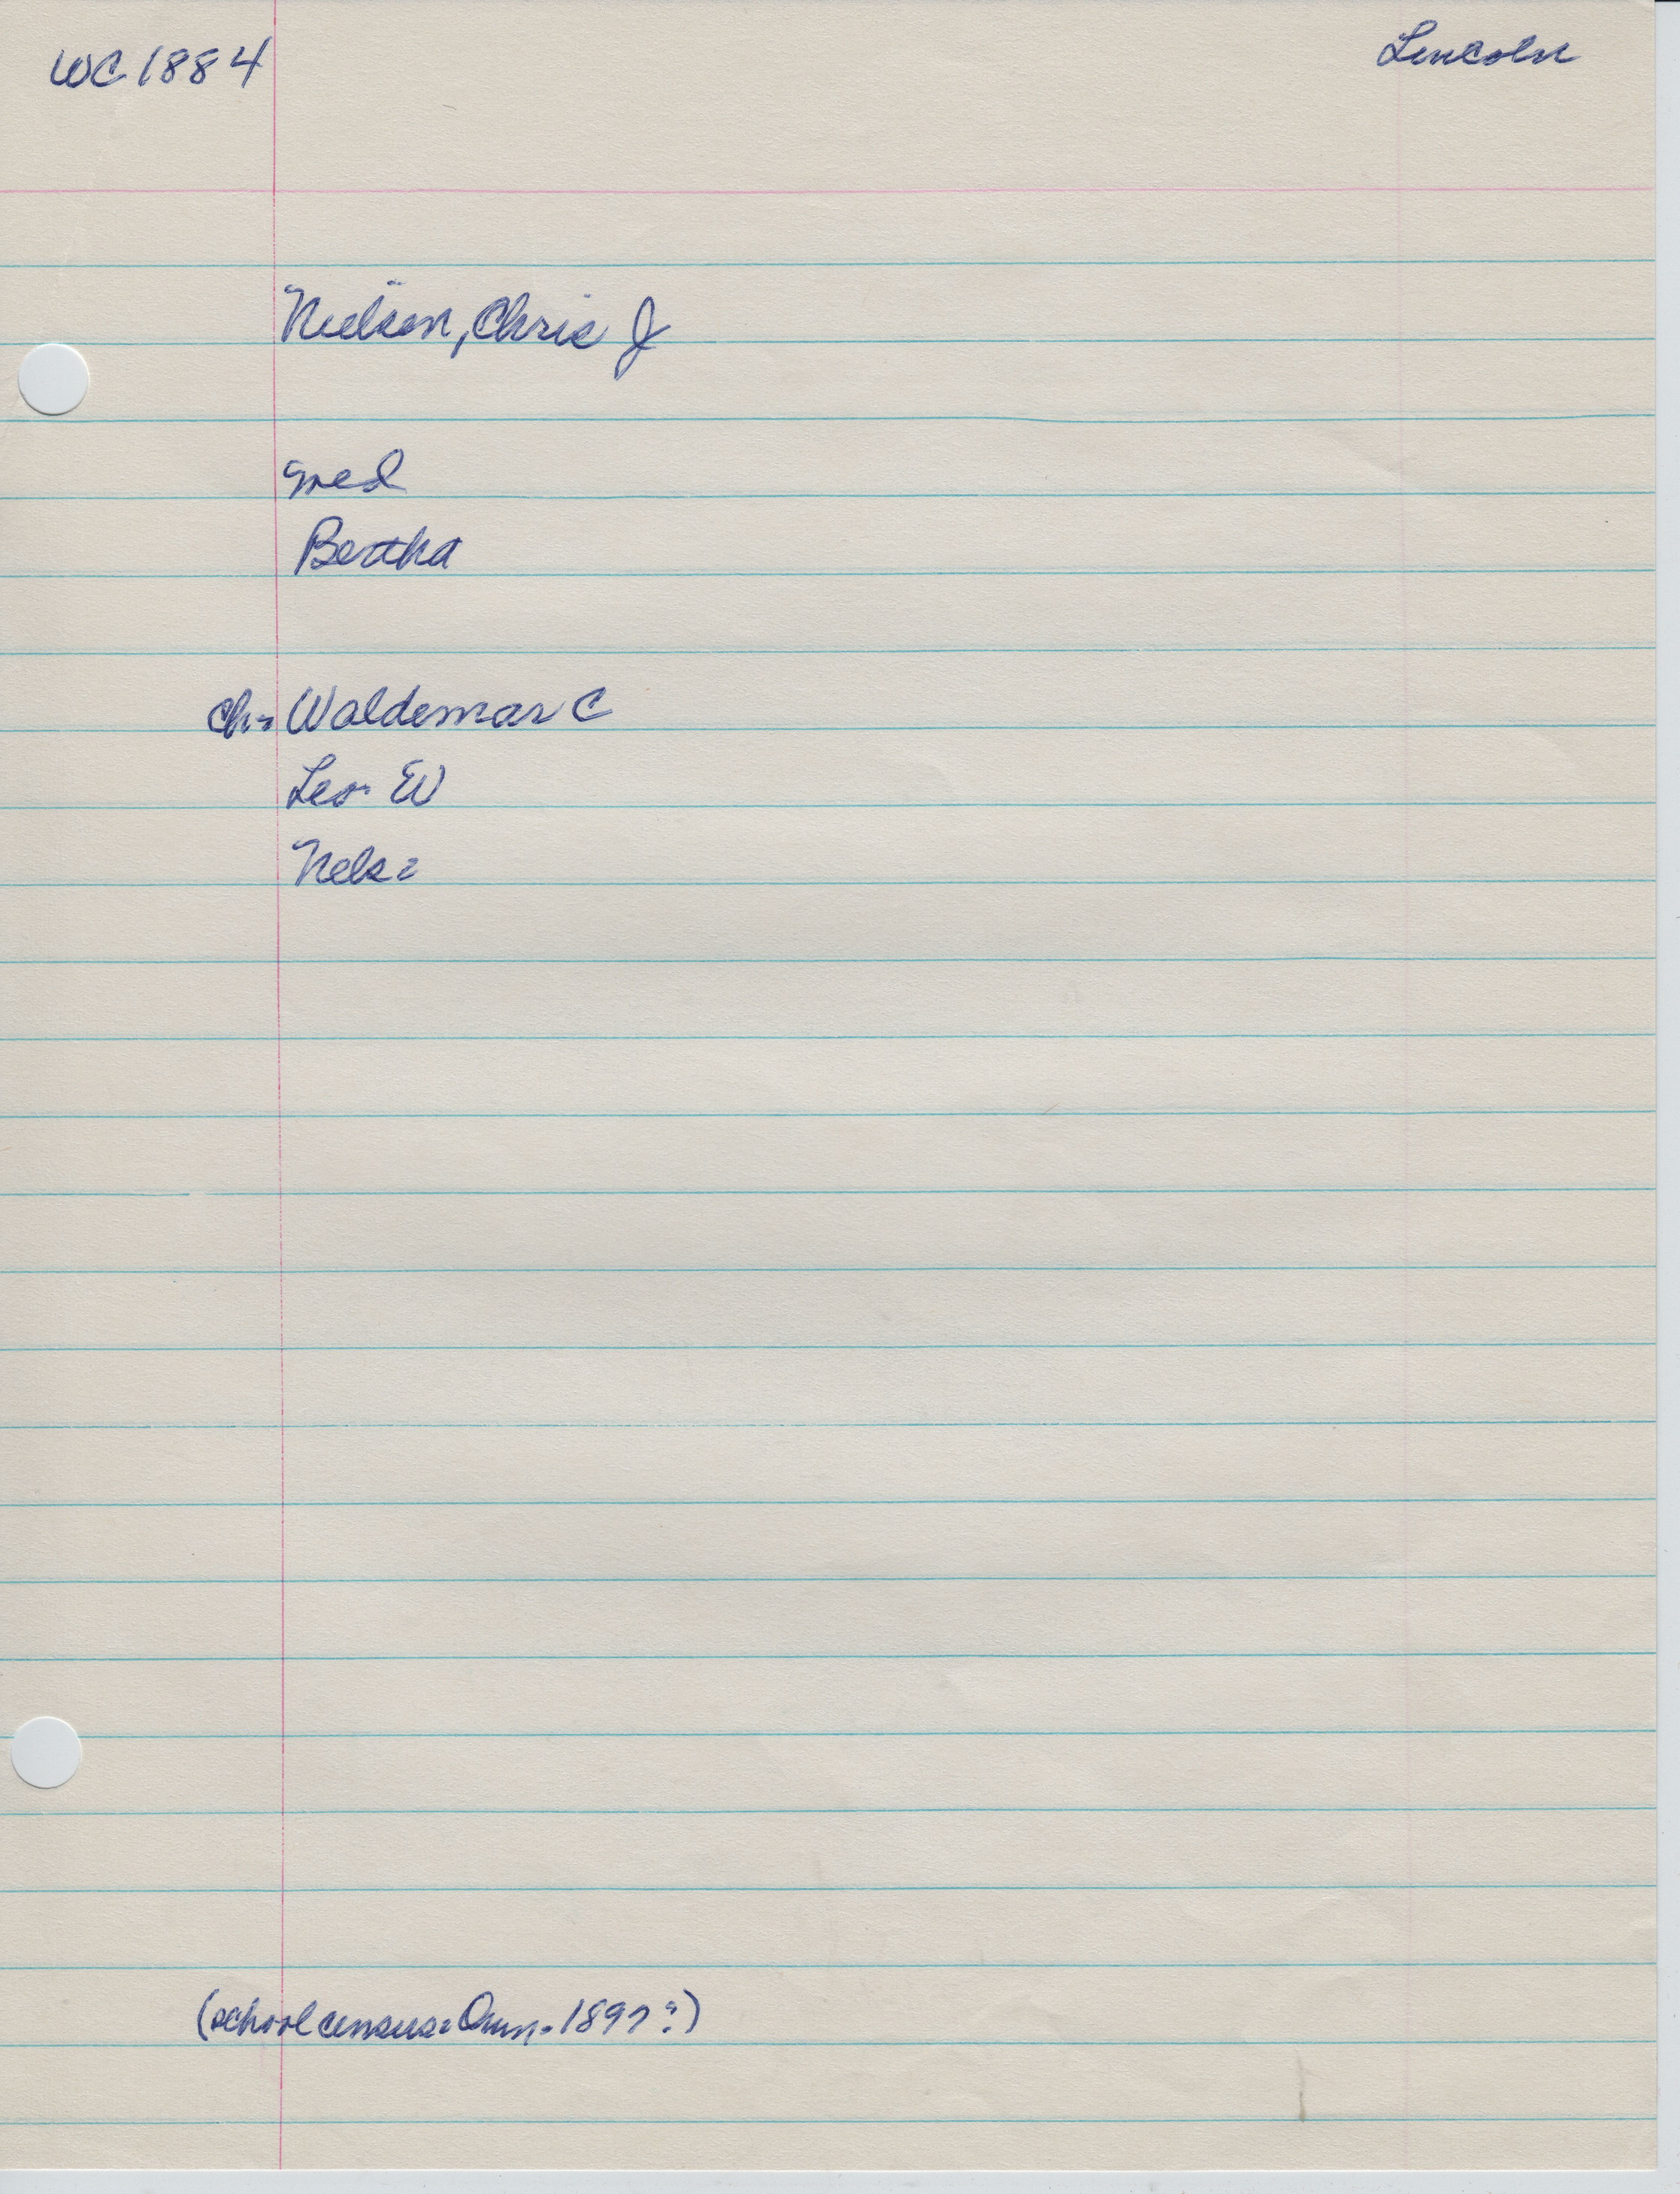 WC 1884
Lincoln
Nielsen, Chris J
med
Bertha
Ch- Waldemar C
Leo W
Nels -
(school census- - 1897?)